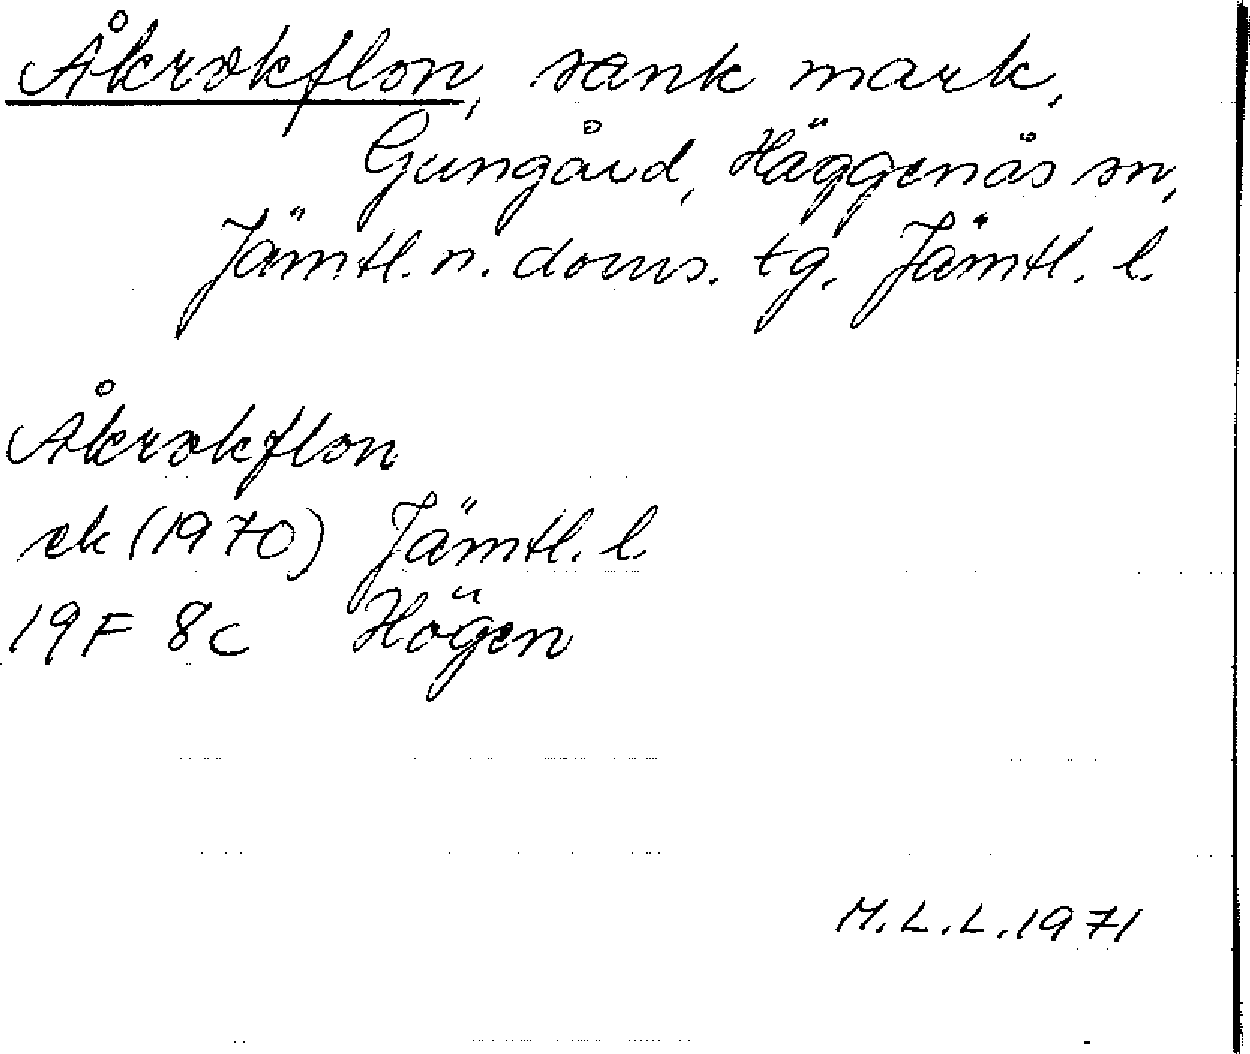 Åkrokflon, sank mark,
Gungård, Häggenäs sn,
Jämtl. n. doms. tg. Jämtl. l
Åkrokflon
ek (1970) Jämtl. l
19F 8c Högen
M.L.L. 1971